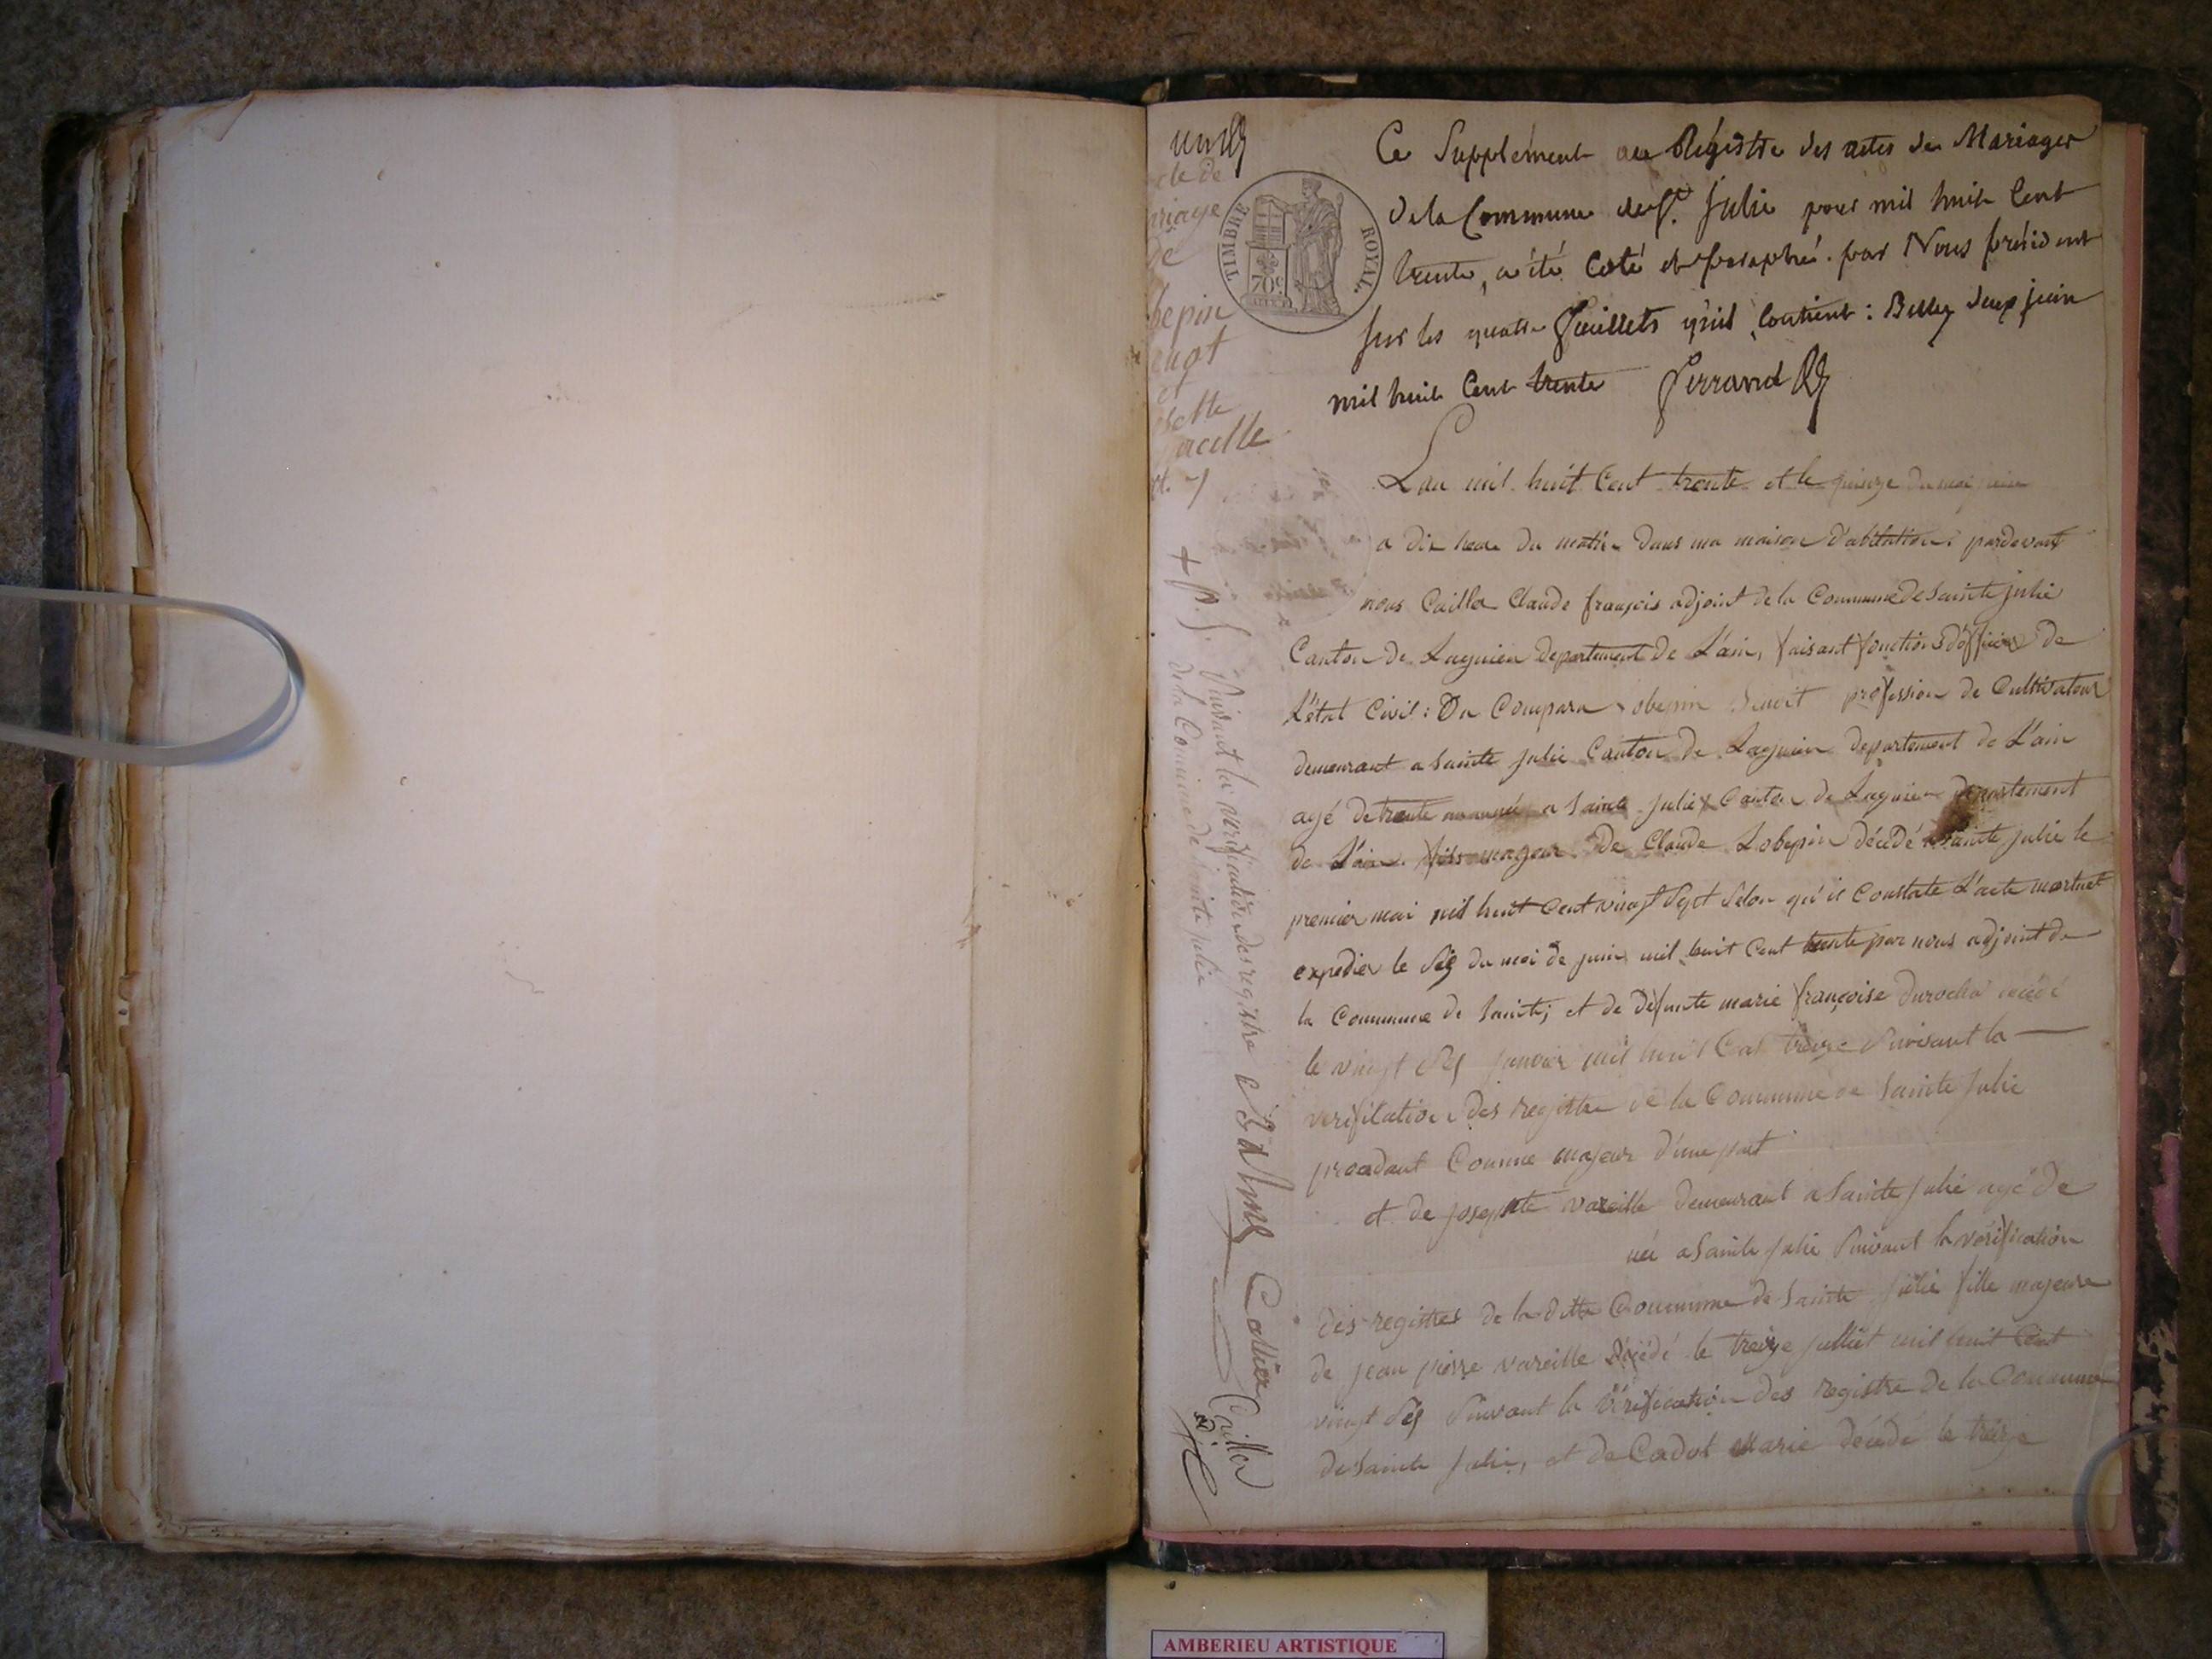 Ce Supplément au Régistre des actes de Mariages
de la Commune de Ste. Julie pour mil huit Cent
trente, a été Coté et paraphé par Nous président
sur les quatre feuillets qu'il Contient : Belley deux juin
mil huit Cent trente Ferrand
TIMBRE ROYAL.
70c
cte de
ariage
de
bepin
enot
et
sette
areille
Lan mil huit Cent trente et le quinze du moi
a dix heure du matin Dans ma maison D'abitation pardevant
nous Cailler Claude françois adjoint de la Commune de Sainte julie
Canton de Lagnieu Departement De L'ain, faisant fonctions d'officier de
L'état Civil : On Compara Lobepin Benoit profession de Cultivateur
demeurant a Sainte julie Canton de Lagnieu departement de L'ain
agé de trente a Sainte julie + Canton de Lagnieu departement
de L'ain fils majeur De Claude Lobepin décédé a Sainte julie le
premier mai mil huit Cent vingt Sept Selon qu'il Constate L'acte mortuel
expedier le Sis du moi de juin mil huit Cent trente par nous adjoint de
la Commune de Sainte; et de Défunte marie françoise durochat décédé
le vingt Sis janvier mil huit Cent treize Suivant la —
verification Des registre de la Commune de Sainte Julie
procedant Comme majeur D'une part
et de josephte vareille Demeurant a Sainte julie agé De
née a Sainte julie Suivant la vérification
des registres de la ditte Commune de Sainte julie fille majeure
de jean pierre vareille Décédé le treize julliet mil huit Cent
vingt Sis Suivant la vérification des registre de la Commune
de Sainte julie, et de Cadot Marie décédé le treize
+ Suivant la verification des registre
de la Commune de Sainte julie
Cailler
adj
AMBERIEU ARTISTIQUE